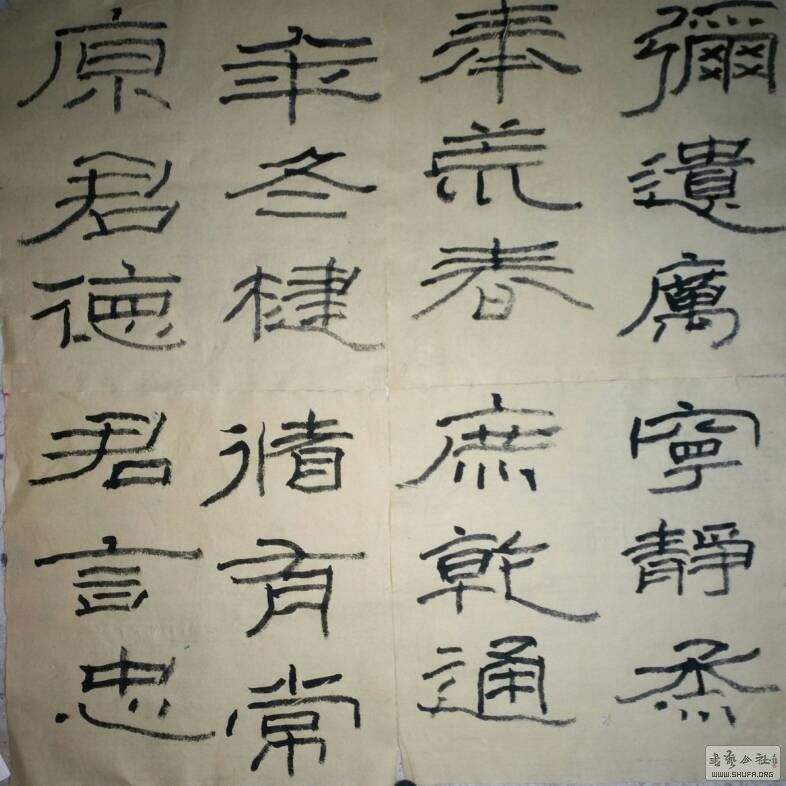 彌遺厲寧靜烝
奉荒春庶乾通
年冬楗循有常
原君德君言忠
書藝公社
WWW.SHUFA.ORG